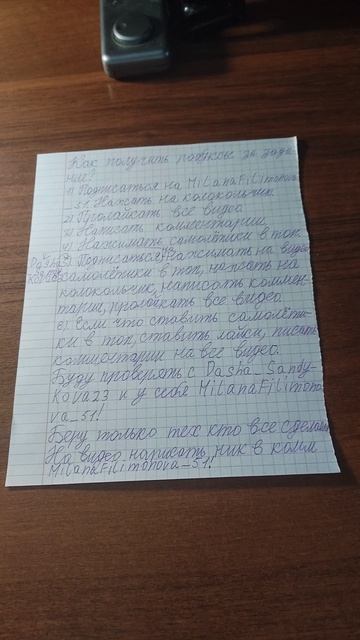 Как получить подкуов за зада-
ние?
1) Подписаться на MiLanaFiLimonova
_51. Нажать на колокольчик.
2) Пролайкать все видео
3) Написать комментарии.
4) Нажимать самолётики в топ.
5) Подписаться, нажимать на видео
самолётики в топ, нажать на
колокольчик, написать коммен-
тарии, пролайкать все видео.
6) Если что ставить самолёти-
ки в топ, ставить лайки, писать
комментарии на все видео.
Буду проверять с Dasha_Sandy-
Kova23 и у себя MiLanaFiLimono
va_51!
Беру только тех кто все сделали
На видео написать ник в комм
MilanaFilimonova_51!